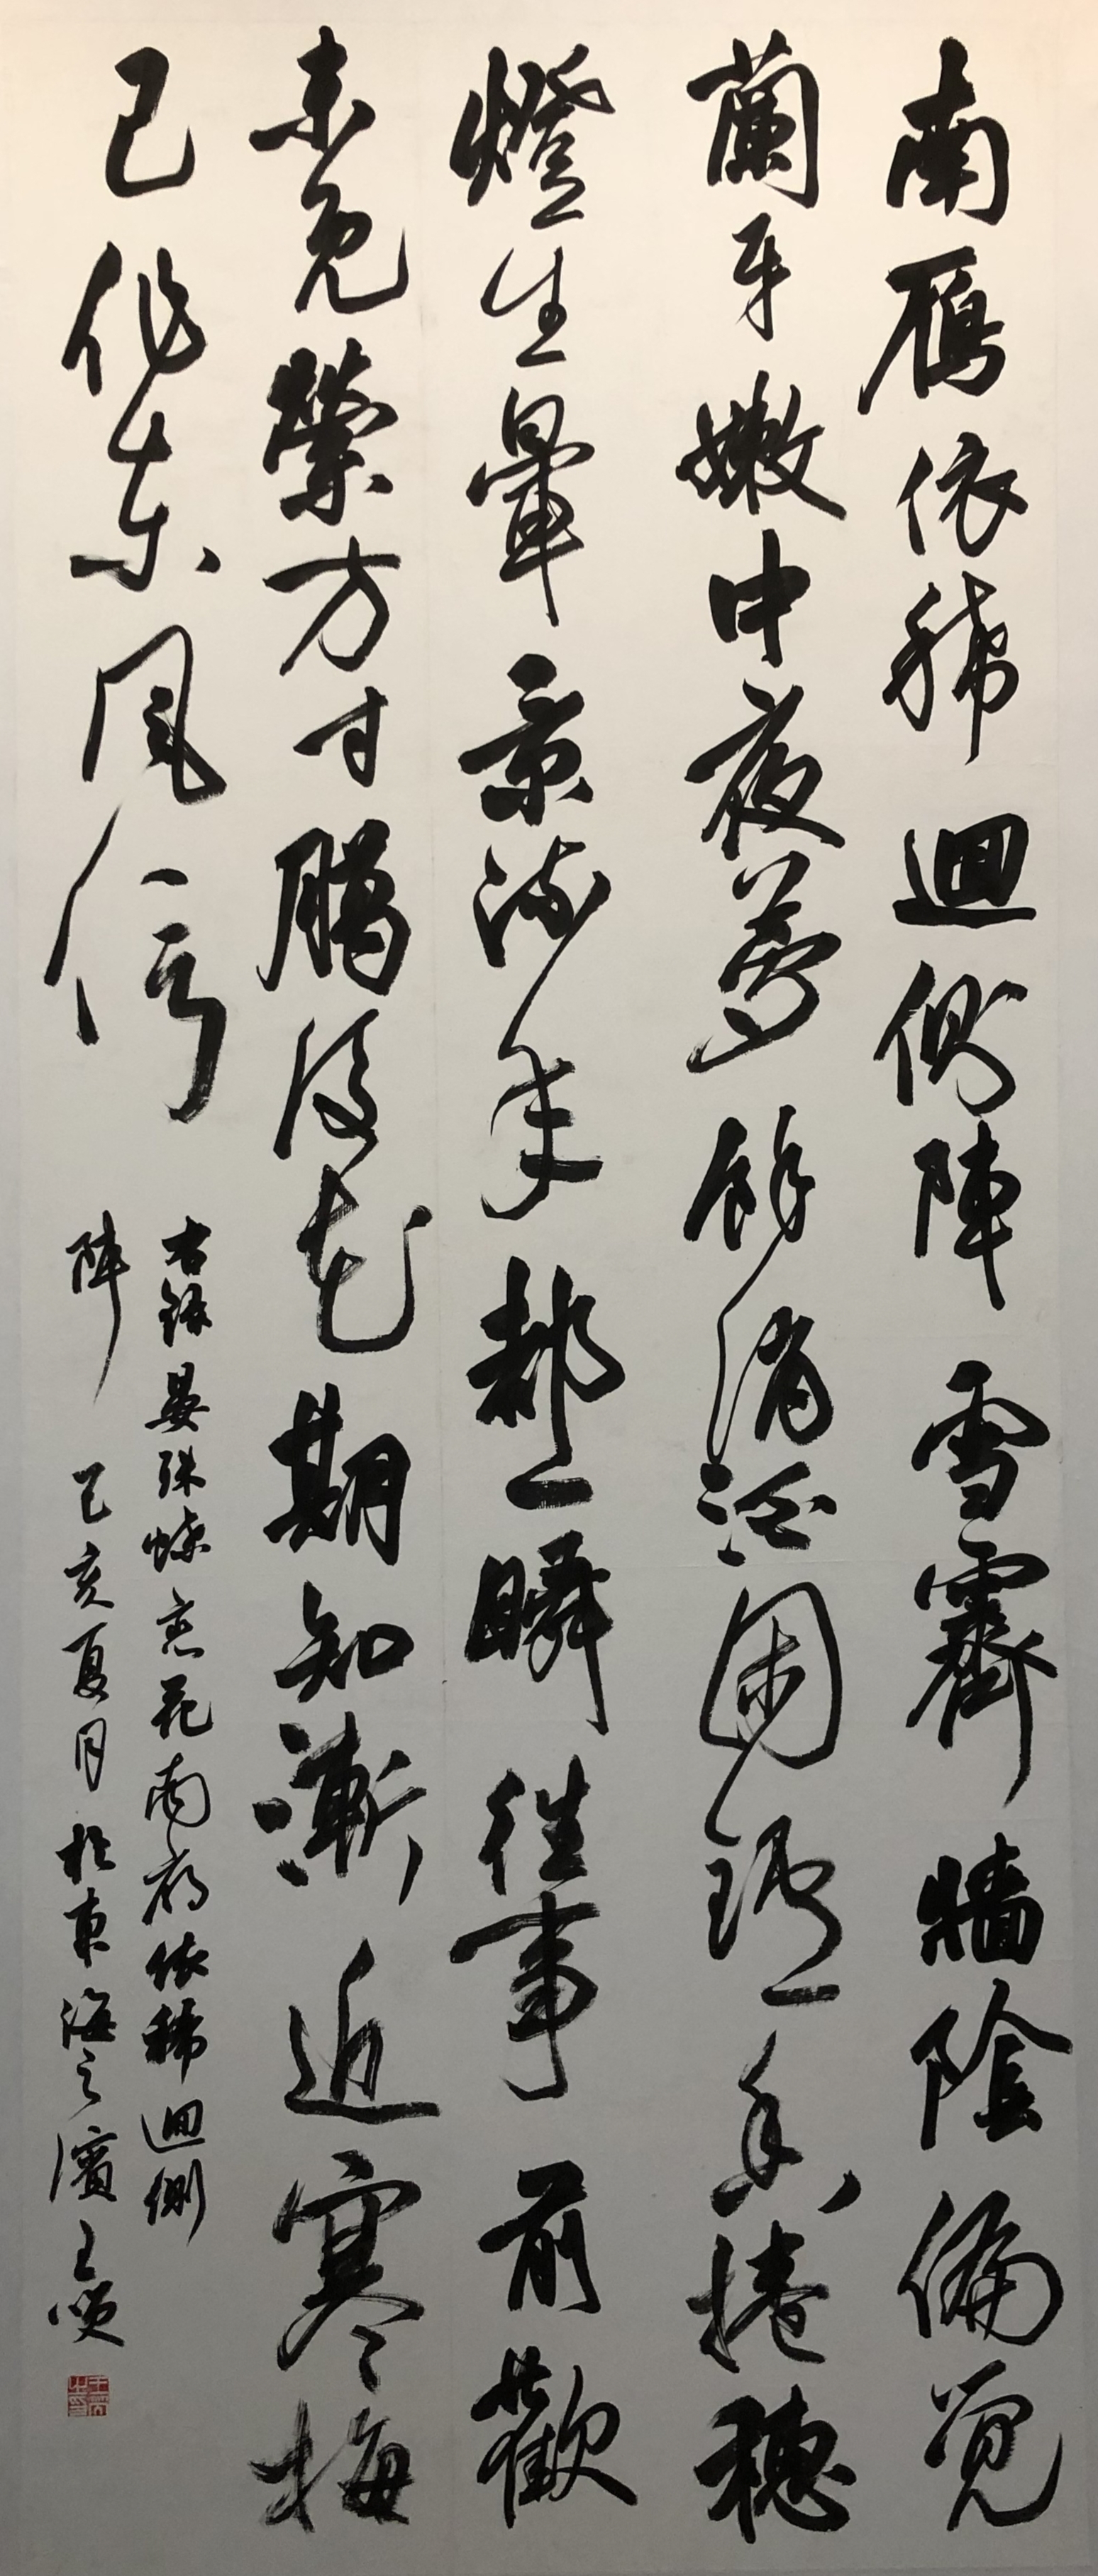 南鴈依稀迴側陣雪霽牆陰偏覺
蘭牙嫩中夜夢餘消酒困爐香捲穗
燈生暈景流年都一瞬往事前歡
未免縈方寸臘後花期知漸近寒梅
已作東風信
右錄晏殊蝶恋花南鴈依稀迴側
陣 己亥夏月於東海之濱王